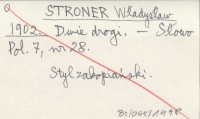 STRONER Władysław
1902. Dwie drogi. – Słowo
Pol. 7, nr. 28.
Styl zakopiański.